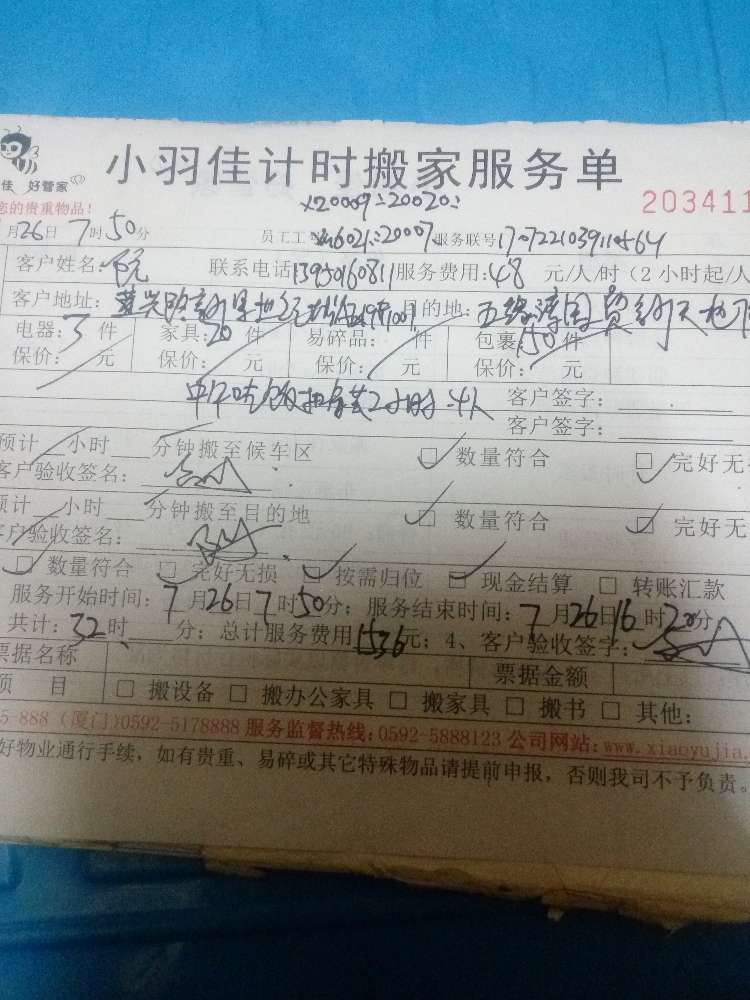 小羽佳计时搬家服务单
佳 好管家
您的贵重物品!
203411
X20009:20020:
月26日7时50分 员工工 X16021:20007 服务联号1707221039110564
客户姓名: 阮 联系电话13950160811服务费用:48 元/人/时(2小时起/人
客户地址: 目的地: 五缘湾国贸天
电器:3件 家具:20件 易碎品: 件 包裹150件
保价: 元 保价: 元 保价: 元 保价: 元
中午吃饭扣2小时4人
客户签字:
客户签字:
预计 小时 分钟搬至候车区 数量符合 完好无
客户验收签名:
预计 小时 分钟搬至目的地 数量符合 完好无
客户验收签名:
数量符合 完好无损 按需归位 现金结算 转账汇款
服务开始时间:7月26日7时50分;服务结束时间:7月26日16时20分
共计:32时 分;总计服务费用1536元;4、客户验收签字:
票据名称 票据金额
项 目 搬设备 搬办公家具 搬家具 搬书 其他:
5-888(厦门)0592-5178888服务监督热线:0592-5888123公司网站:www.xiaoyujia.
好物业通行手续,如有贵重、易碎或其它特殊物品请提前申报,否则我司不予负责。